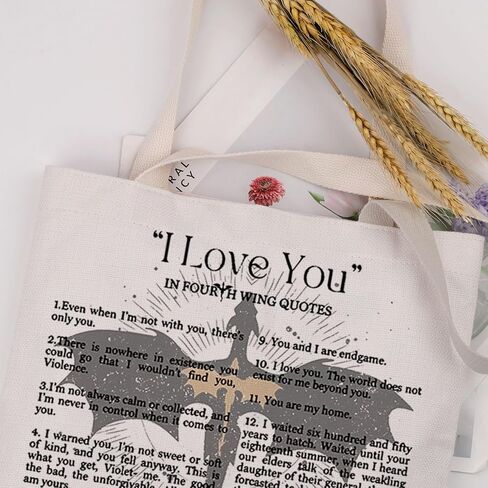 RAL
ICY
“I Love You”
IN FOURTH WING QUOTES
1.Even when I'm not with you, there's
only you.
2.There is nowhere in existence you
could go that I wouldn't find you,
Violence.
3.I'm not always calm or collected, and
I'm never in control when it comes to
you.
4. I warned you. I'm not sweet or soft
of kind, and you fell anyway. This is
what you get, Violet, me. The good
the bad, the unforgivable. All
am yours
9. You and I are endgame.
10. I love you. The world does not
exist for me beyond you.
11. You are my home.
12. I waited six hundred and fifty
years to hatch. Waited until your
eighteenth summer, when I heard
our elders talk of the weakling
daughter of their general, the
forecasted to